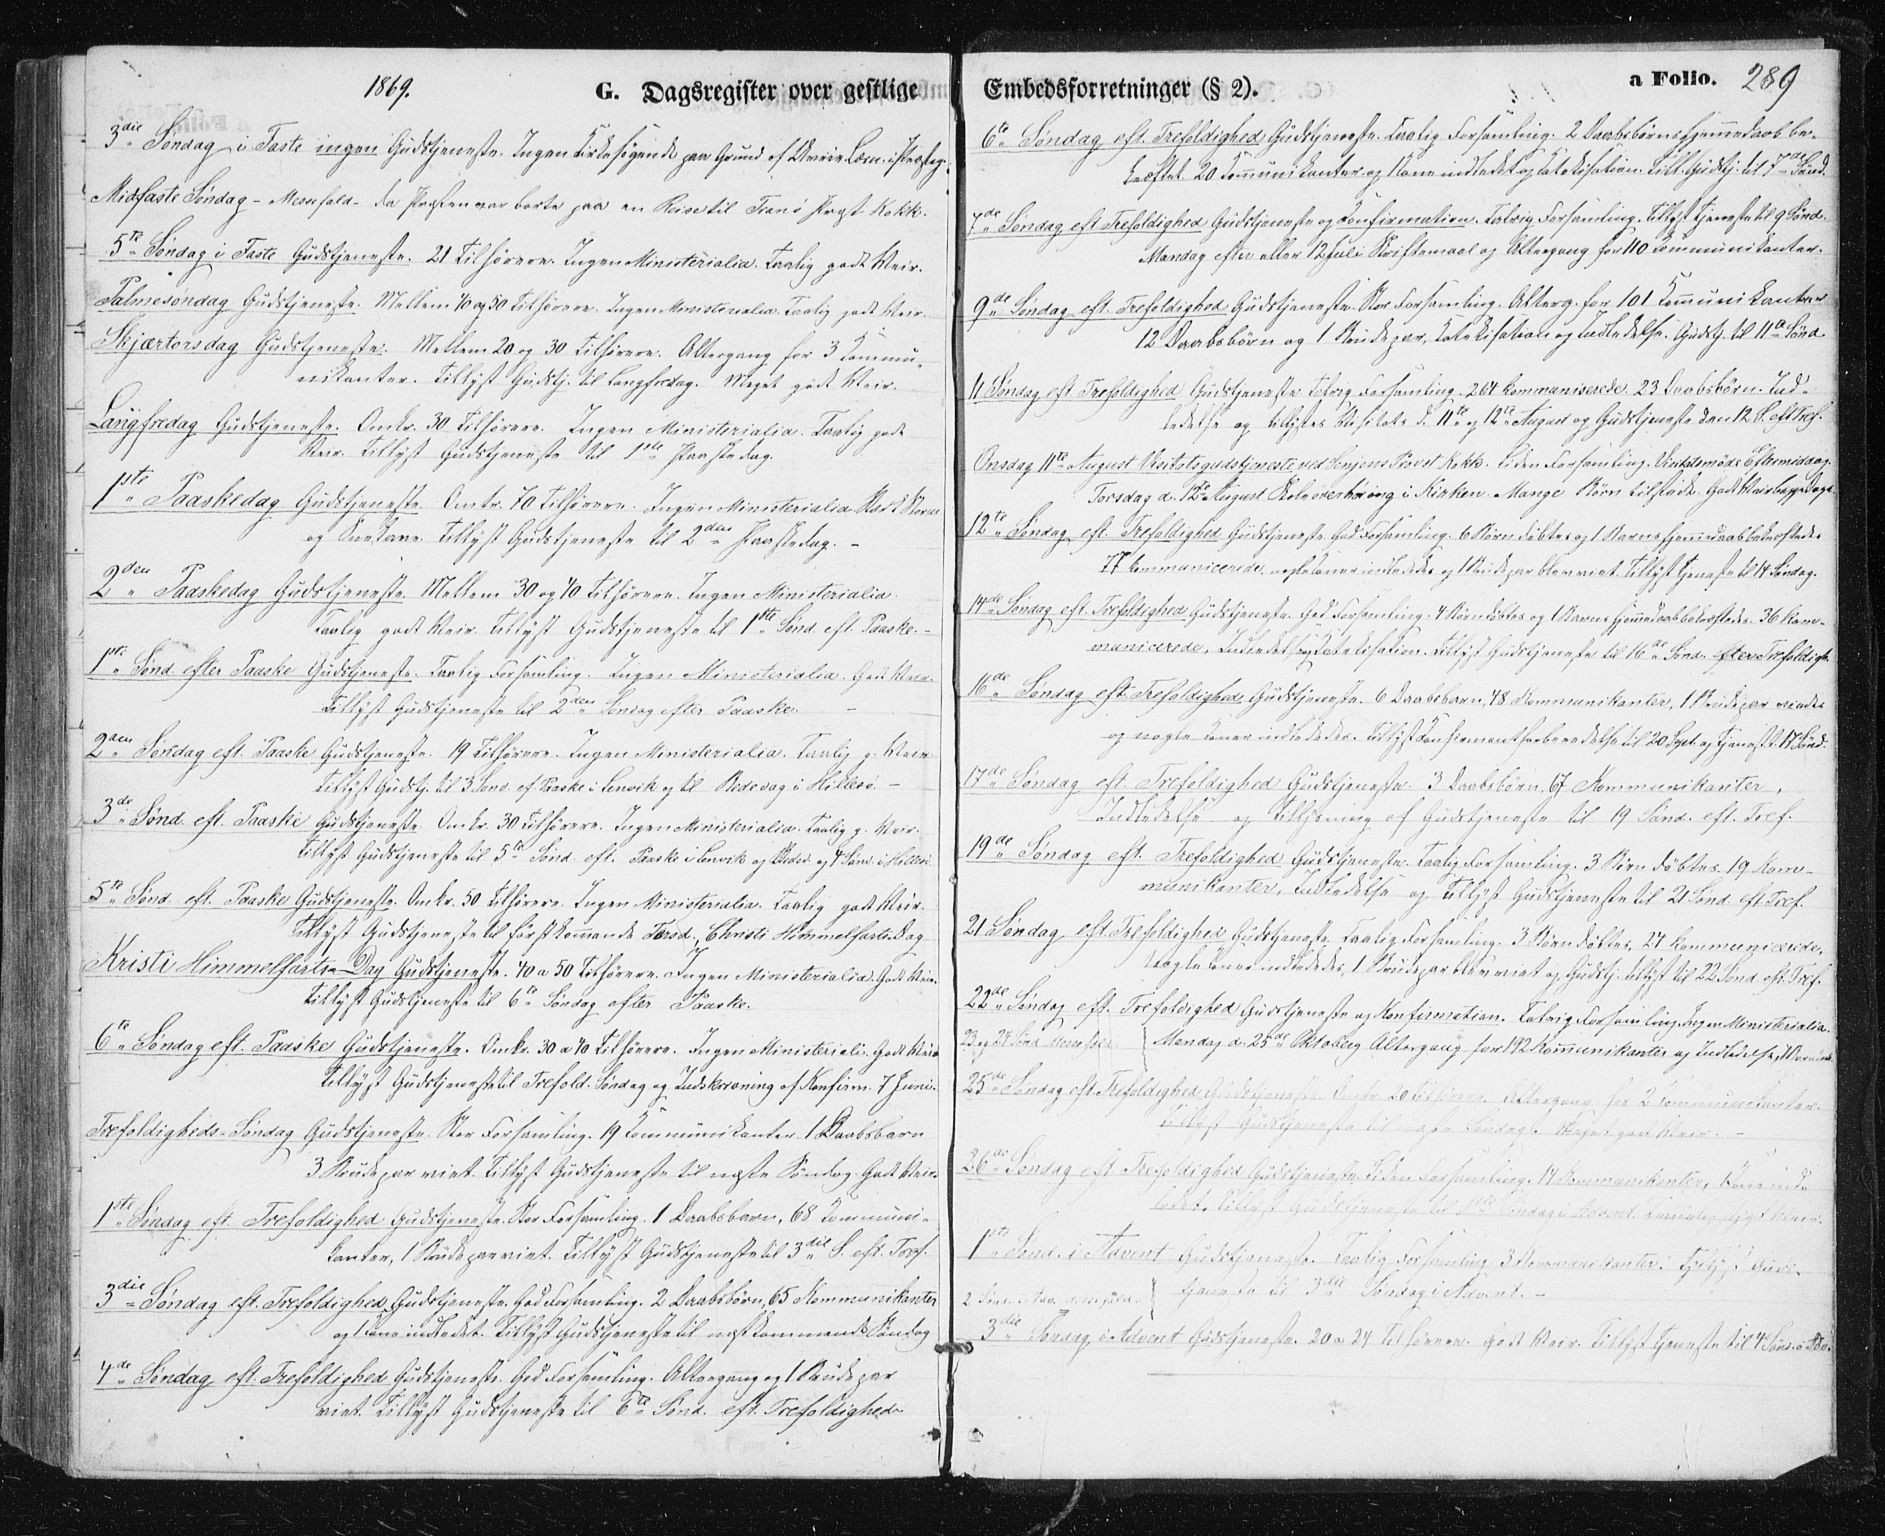 1869.
G. Dagsregister over gestlige
3die Søndag i Faste ingen Gudstjeneste. Ingen Kirkesøgende paa Grund af
Midfaste Søndag - Messefald - da Præsten var borte paa en Reise til Tranø Præst Kokk.
5te Søndag i Faste Gudstjeneste. 21 Tilhørere. Ingen Ministerialia. Taalig godt Veir.
Palmesøndag Gudstjeneste. Mellem 40 og 50 Tilhørere. Ingen Ministerialia. Taalig godt Veir.
Skjærtorsdag Gudstjeneste. Mellem 20 og 30 Tilhørere. Altergang for 3 Kommu-
nikanter. Tillyst Gudstj. til Langfredag. Meget godt Veir.
Langfredag Gudstjeneste. Omkr. 30 Tilhørere. Ingen Ministerialia. Taalig godt
Veir. Tillyst Gudstjeneste til 1ste Paaskedag.
1ste Paaskedag Gudstjeneste. Omkr. 70 Tilhørere. Ingen Ministerialia.
og Tillyst Gudstjeneste til 2den Paaskedag. -
2den Paaskedag Gudstjeneste. Mellem 30 og 40 Tilhørere. Ingen Ministerialia.
Taalig godt Veir. Tillyst Gudstjeneste til 1ste Sønd. eft. Paaske. -
1ste Sønd. efter Paaske Gudstjeneste. Taalig Forsamling. Ingen Ministerialia. Godt Veir.
Tillyst Gudstjeneste til 2den Søndag efter Paaske. -
2den Søndag eft. Paaske Gudstjeneste. 19 Tilhørere. Ingen Ministerialia. Taalig g. Veir
Tillyst Gudstj. til 3 Sønd. ef. Paaske i Lenvik og til Bededag i Hillesø. -
3de Sønd. eft. Paaske Gudstjeneste. Omkr. 30 Tilhørere. Ingen Ministerialia. Taalig g. Veir.
Tillyst Gudstjeneste til 5te Sønd. eft. Paaske i Lenvik og Beded. og 4 Sønd. i Hillesø.
5te Sønd. eft. Paaske Gudstjeneste. Omkr. 50 Tilhørere. Ingen Ministerialia. Taalig godt Veir.
Tillyst Gudstjeneste til førstkommende Torsd., Christi Himmelfartsdag
Kristi Himmelfarts-Dag Gudstjeneste. 40 a 50 Tilhørere. Ingen Ministerialia. Godt Veir.
Tillyst Gudstjeneste til 6te Søndag efter Paaske.
6te Søndag eft. Paaske Gudstjeneste. Omkr. 30 a 40 Tilhørere. Ingen Ministeriali. Godt Veir
Tillyst Gudstjeneste til Trefold. Søndag og Indskrivning af Konfirm. 7 Juni.
Trefoldigheds-Søndag Gudstjeneste. Stor Forsamling. 19 Kommunikanter. 1 Daabsbarn
3 Brudepar viet. Tillyst Gudstjeneste til næste Søndag. Godt Veir.
1ste Søndag eft. Trefoldighed Gudstjeneste. Stor Forsamling. 1 Daabsbarn, 68 Kommuni-
kanter, 1 Brudepar viet. Tillyst Gudstjeneste til 3die S. eft. Tref.
3die Søndag eft. Trefoldighed Gudstjeneste. God Forsamling. 2 Daabsbørn, 65 Kommunikanter
og 1 Kone indledet. Tillyst Gudstjeneste til næstkommende Søndag
4de Søndag eft. Trefoldighed Gudstjeneste. God Forsamling. Altergang og 1 Brudepar
viet. Tillyst Gudstjeneste til 6te Sønd. eft. Trefoldighed
Embedsforretninger (§ 2).
a Folio. 289
6te Søndag eft. Trefoldighed Gudstjeneste. Taalig Forsamling. 2 Daabsbørns Hjemmedaab be-
kræftet. 20 Kommunikanter og 1 Kone indledet og Katekisation. Till. Gudstj. til 7de Sønd.
7de Søndag eft Trefoldighed Gudstjeneste og Konfirmation. Talrig Forsamling. Tillyst Tjeneste til 9 Sønd.
Mandag efter eller 12 Juli Skriftemaal og Altergang for 110 Kommunikanter.
9de Søndag eft. Trefoldighed Gudstjeneste. Stor Forsamling. Alterg. for 101 Kommunikanter
12 Daabsbörn og 1 Brudepar, Katekisation og Indledelse. Gudstj. til 11te Sønd
11 Søndag eft. Trefoldighed Gudstjeneste. Talrig Forsamling. 264 kommunicerede. 23 Daabsbörn. Ind-
ledelse og tillystes Visitats d. 11te og 12te August og Gudstjeneste den 12 S. eft Tref.
Onsdag 11te August Visitatsgudstjeneste ved Senjens Provst Kokk. Liden Forsamling. Visitatsmøde Eftermiddag.
Torsdag d. 12te August Skoleoverhøring i Kirken. Mange Børn tilstede. Godt Veir begge Dage.
12te Søndag eft. Trefoldighed Gudstjeneste. God Forsamling. 6 Børn døbtes og 1 Barns Hjemmedaab bekræftedes
77 kommunicerede, nogle Koner indlededes og 1 Brudepar blev viet. Tillyst Tjeneste til 14 Søndag.
14de Søndag eft. Trefoldighed Gudstjeneste. God Forsamling. 4 Børn døbtes og 1 Barns Hjemmedaab bekræftedes. 36 kom-
municerede, Indledelse og Katekisation. Tillyst Gudstjeneste til 16de Sønd. efter Trefoldigh.
16de Søndag eft. Trefoldighed Gudstjeneste. 6 Daabsbarn, 48 Kommunikanter, 1 Brudepar viedes
og nogle Koner indlededes. Tillyst Konfirmantforberedelse til 20 Sept. og Tjenest t. 17 Sønd.
17de Søndag eft. Trefoldighed Gudstjeneste. 3 Daabsbörn, 67 Kommunikanter,
Indledelse og Tillysning af Gudstjeneste til 19 Sønd. eft. Tref.
19de Søndag eft. Trefoldighed Gudstjeneste. Taalig Forsamling. 3 Børn døbtes. 19 Kom-
munikanter, Indledelse og Tillyst Gudstjeneste til 21 Sønd. eft. Tref.
21 Søndag eft. Trefoldighed Gudstjeneste. Taalig Forsamling. 3 Børn døbtes, 27 kommunicerede,
nogle Koner indlededes, 1 Brudepar blev viet og Gudstj. tillyst til 22 Sønd. eft. Tref.
22de Søndag eft. Trefoldighed Gudstjeneste og Konfirmation. Talrig Forsamling. Ingen Ministerialia.
23 og 24 Sønd. Messefald. } Mandag d. 25de Oktober Altergang for 192 Kommunikanter og Indledelse,
25de Søndag eft. Trefoldighed Gudstjeneste. Omkr. 20 Tilhørere. Altergang for 2 Kommunikanter.
Tillyst Gudstjeneste til næste Søndag. Meget godt Veir. -
26de Søndag eft Trefoldighed Gudstjeneste. Liden Forsamling. 14 Kommunikanter, 1 Kone ind-
ledet. Tillyst Gudstjeneste til 1ste Søndag i Advent. Veir.
1ste Sønd. i Advent Gudstjeneste. Taalig Forsamling. 3 Kommunikanter. Tillyst Guds-
2 Sønd. i Adv. Messefald. } tjeneste til 3die Søndag i Advent. -
3die Søndag i Advent Gudstjeneste. 20 a 24 Tilhørere. Godt Veir. Tillyst Tjeneste til 4 Sønd. i Adv.